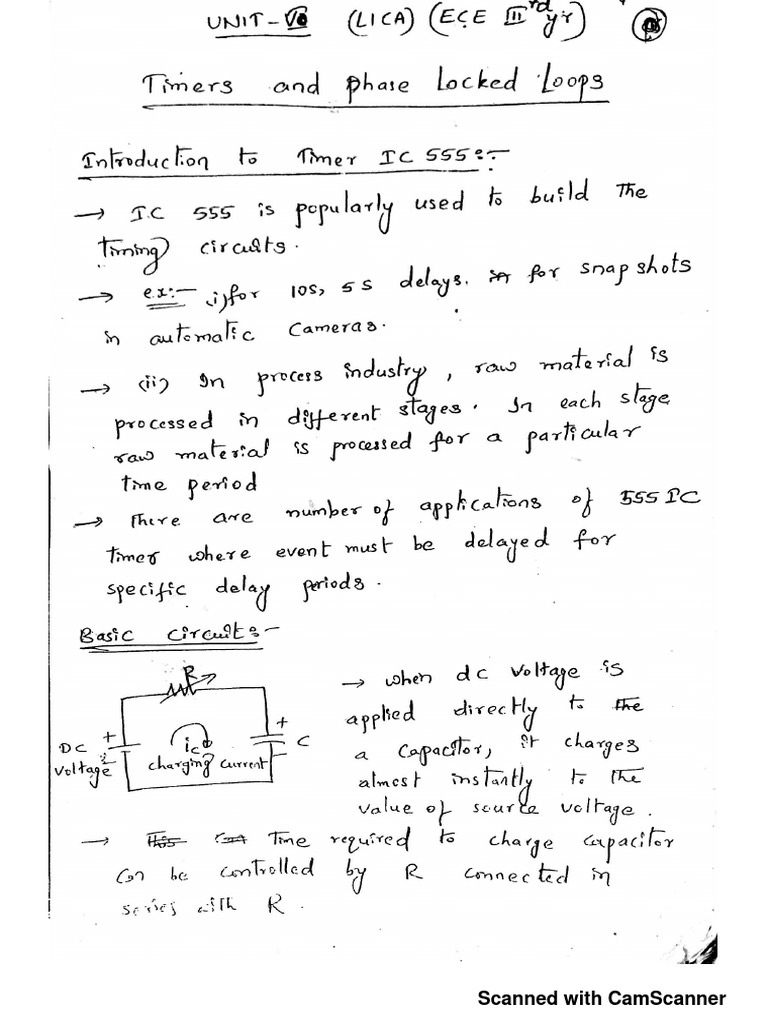 UNIT-VI (LICA) (ECE III rd yr)
Timers and Phase Locked Loops
Introduction to Timer IC 555:-
→ I.C 555 is popularly used to build the
timing circuits.
→ ex:- (i) for 10s, 5s delays. for snapshots
in automatic Cameras.
→ (ii) In process industry, raw material is
processed in different stages. In each stage
raw material is processed for a particular
time period
→ There are number of applications of 555 IC
timer where event must be delayed for
specific delay periods.
Basic Circuit:-
R
DC
Voltage
+
-
ic
charging current
+
-
C
→ when dc voltage is
applied directly to the
a capacitor, it charges
almost instantly to the
value of source voltage.
→ This Time required to charge capacitor
can be controlled by R connected in
series with R.
Scanned with CamScanner